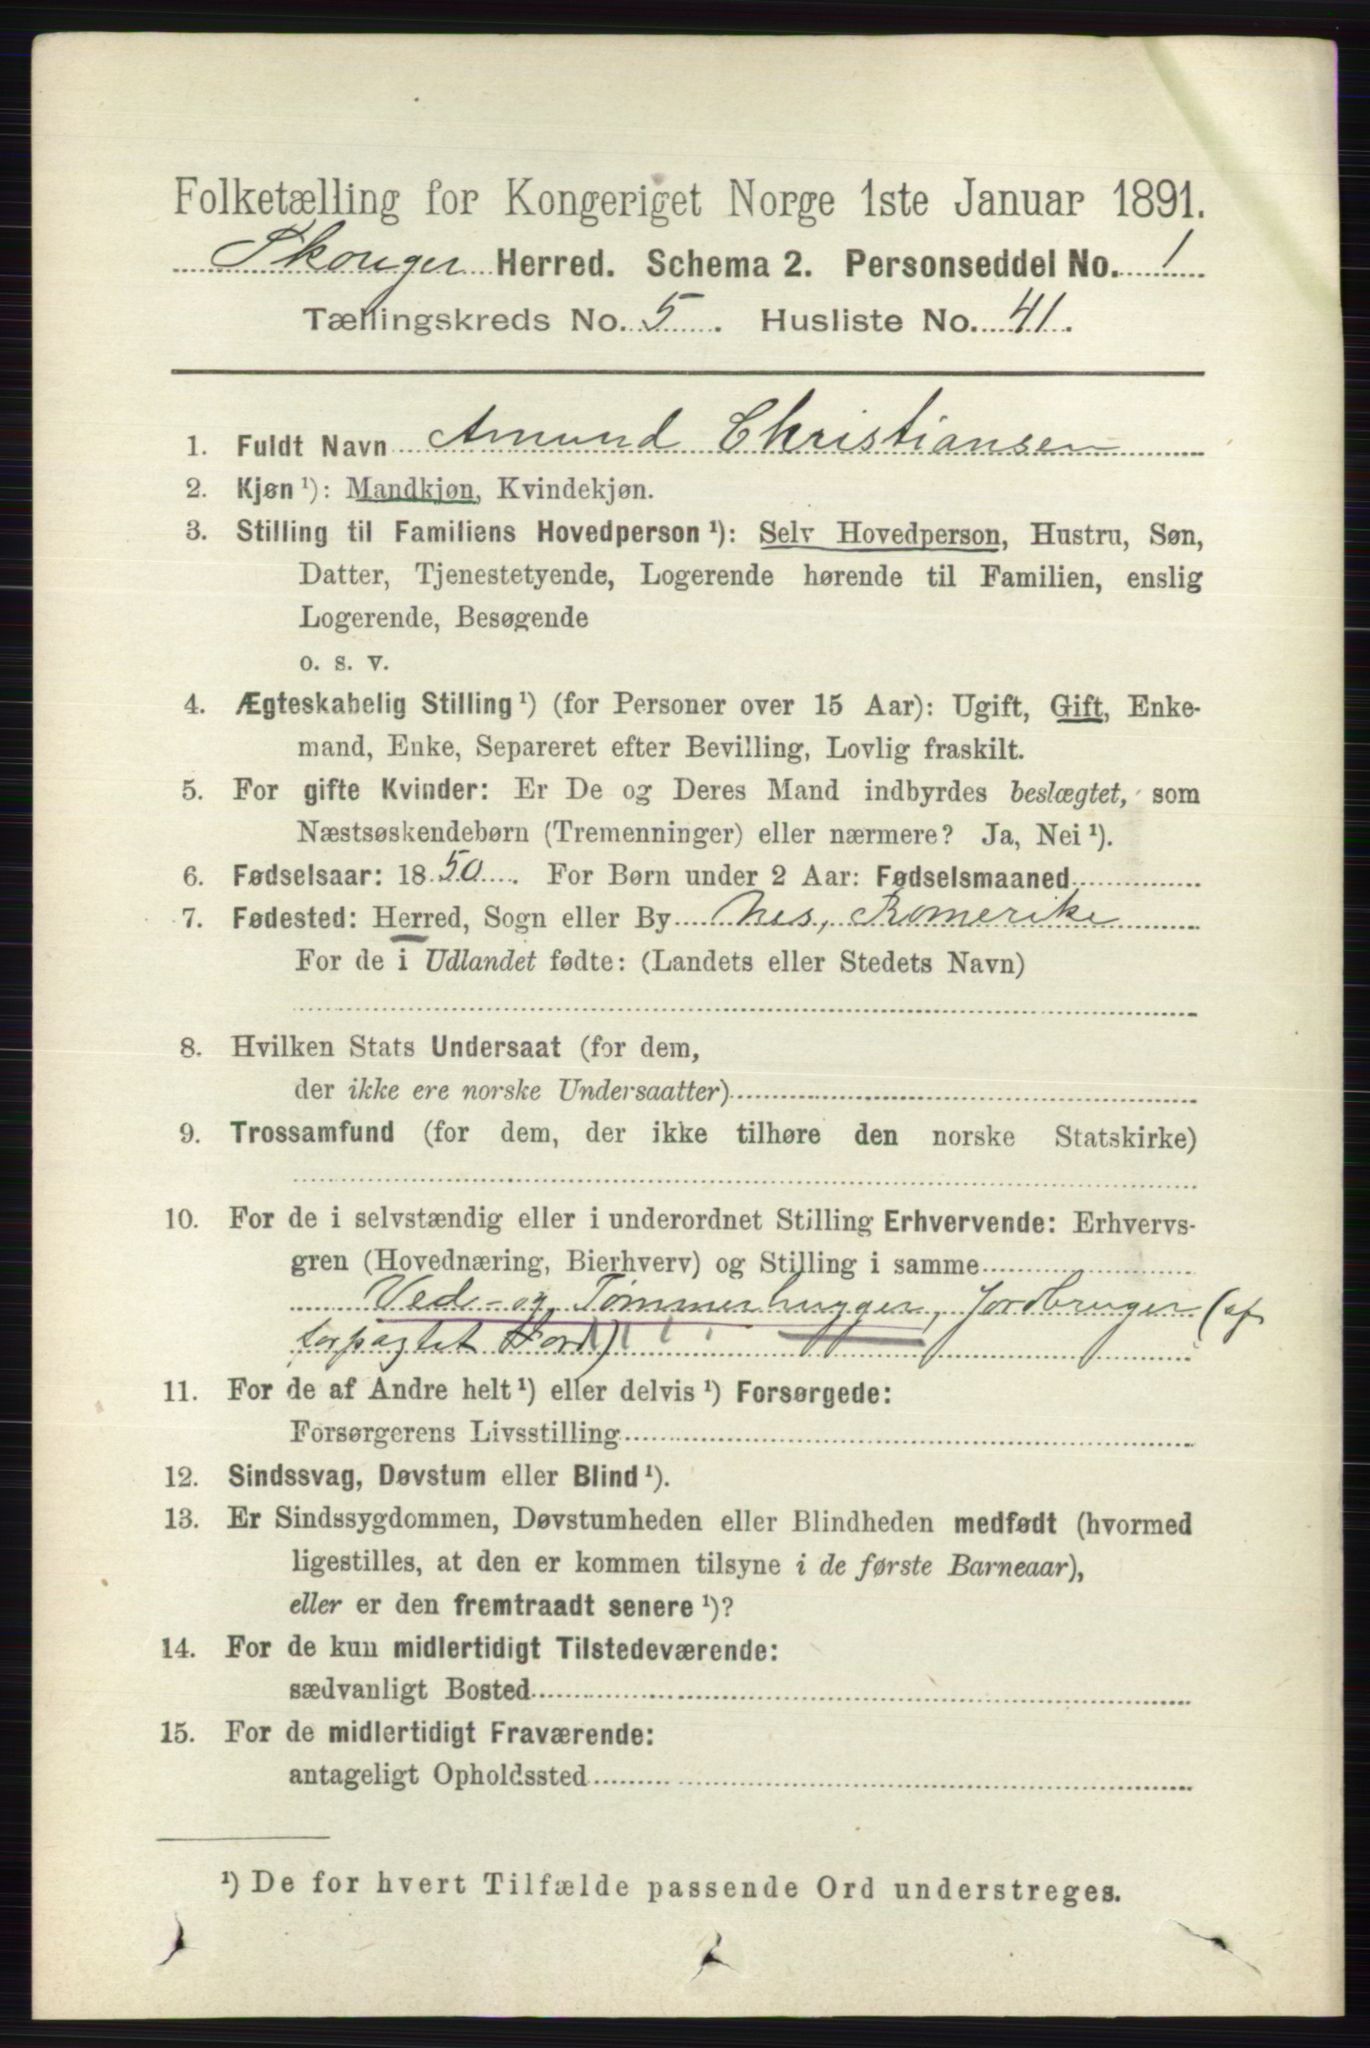 Folketælling for Kongeriget Norge 1ste Januar 1891.
Skouger Herred. Schema 2. Personseddel No. 1
Tællingskreds No. 5. Husliste No. 41.
1. Fuldt Navn Amund Christiansen
2. Kjøn ¹): Mandkjøn, Kvindekjøn.
3. Stilling til Familiens Hovedperson ¹): Selv Hovedperson, Hustru, Søn,
Datter, Tjenestetyende, Logerende hørende til Familien, enslig
Logerende, Besøgende
o. s. v.
4. Ægteskabelig Stilling ¹) (for Personer over 15 Aar): Ugift, Gift, Enke-
mand, Enke, Separeret efter Bevilling, Lovlig fraskilt.
5. For gifte Kvinder: Er De og Deres Mand indbyrdes beslægtet, som
Næstsøskendebørn (Tremenninger) eller nærmere? Ja, Nei ¹).
6. Fødselsaar: 1850. For Børn under 2 Aar: Fødselsmaaned
7. Fødested: Herred, Sogn eller By Nes, Romerike
For de i Udlandet fødte: (Landets eller Stedets Navn)
8. Hvilken Stats Undersaat (for dem,
der ikke ere norske Undersaatter)
9. Trossamfund (for dem, der ikke tilhøre den norske Statskirke)
10. For de i selvstændig eller i underordnet Stilling Erhvervende: Erhvervs-
gren (Hovednæring, Bierhverv) og Stilling i samme
Ved- og Tømmerhugger, Jordbruger (af
forpagtet Jord)
11. For de af Andre helt ¹) eller delvis ¹) Forsørgede:
Forsørgerens Livsstilling
12. Sindssvag, Døvstum eller Blind ¹).
13. Er Sindssygdommen, Døvstumheden eller Blindheden medfødt (hvormed
ligestilles, at den er kommen tilsyne i de første Barneaar),
eller er den fremtraadt senere ¹)?
14. For de kun midlertidigt Tilstedeværende:
sædvanligt Bosted
15. For de midlertidigt Fraværende:
antageligt Opholdssted
¹) De for hvert Tilfælde passende Ord understreges.